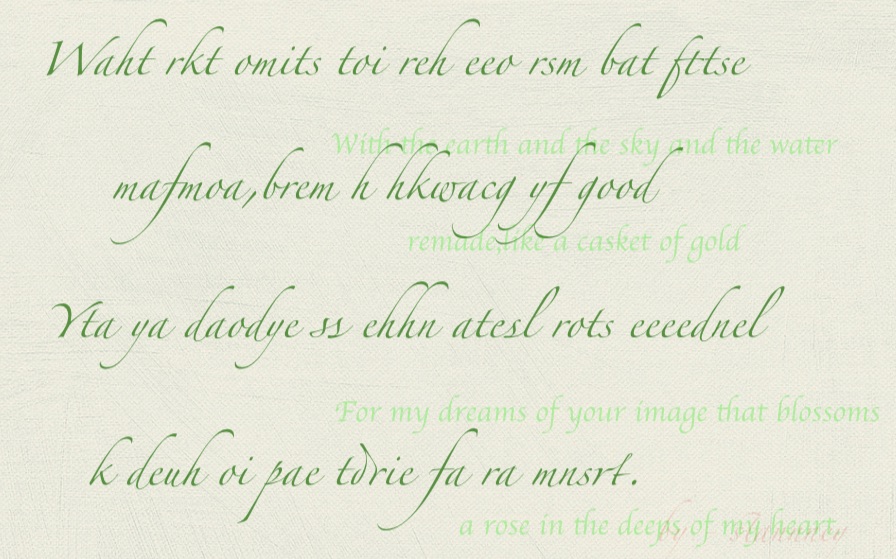 Waht rkt omits toi reh eeo rsm bat fttse
With the earth and the sky and the water
mafmoa,brem h hkwacg yf good
remade,like a casket of gold
Yta ya daodye ss ehhn atesl rots eeeednel
For my dreams of your image that blossoms
k deuh oi pae tdrie fa ra mnsrt.
a rose in the deeps of my heart.
by